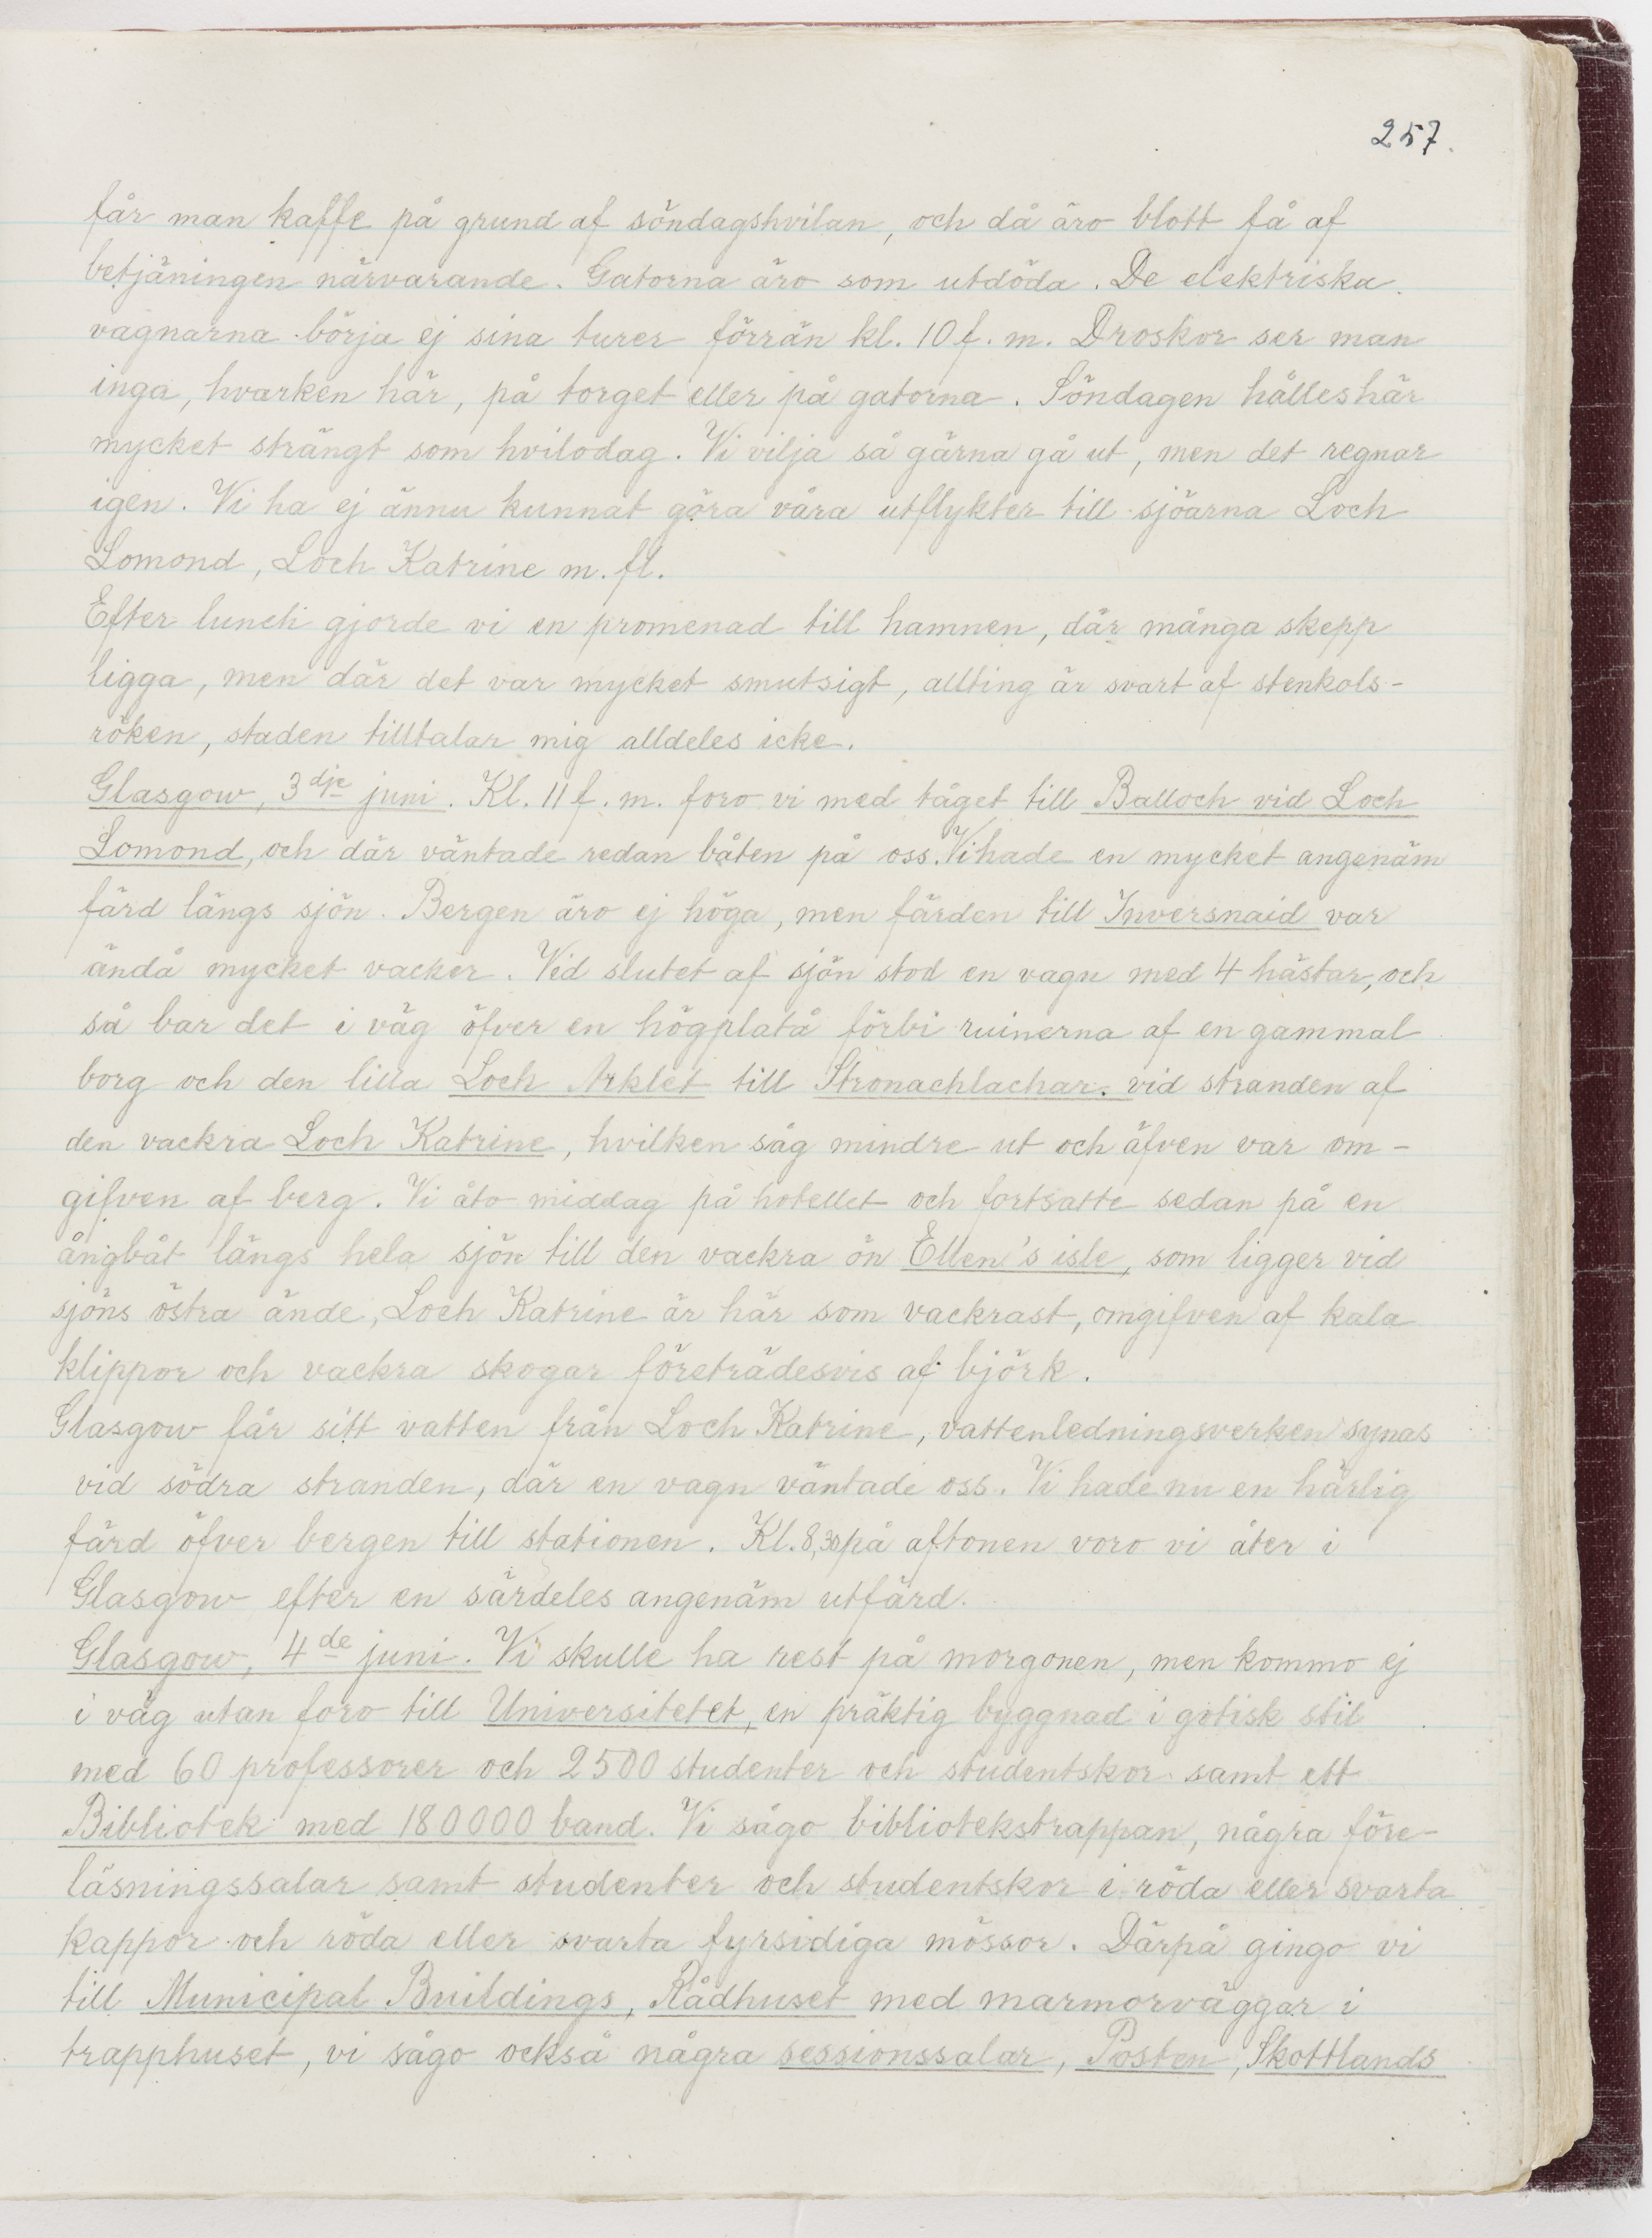 257.
får man kaffe på grund af söndagshvilan, och då äro blott få af
betjäningen närvarande. Gatorna äro som utdöda. De elektriska
vagnarna börja ej sina turer förrän kl. 10 f. m. Droskor ser man
inga, hvarken här, på torget eller på gatorna. Söndagen hålles här
mycket strängt som hvilodag. Vi vilja så gärna gå ut, men det regnar
igen. Vi ha ej ännu kunnat göra våra utflykter till sjöarna Loch
Lomond, Loch Katrine m. fl.
Efter lunch gjorde vi en promenad till hamnen, där många skepp
ligga, men där det var mycket smutsigt, allting är svart af stenkols-
röken, staden tilltalar mig alldeles icke.
Glasgow, 3dje juni. Kl. 11 f. m. foro vi med tåget till Balloch vid Loch
Lomond, och där väntade redan båten på oss. Vi hade en mycket angenäm
färd längs sjön. Bergen äro ej höga, men färden till Inversnaid var
ändå mycket vacker. Vid slutet af sjön stod en vagn med 4 hästar, och
så bar det i väg öfver en högplatå förbi ruinerna af en gammal
borg och den lilla Loch Arklet till Stronachlachar. vid stranden af
den vackra Loch Katrine, hvilken såg mindre ut och äfven var om-
gifven af berg. Vi åto middag på hotellet och fortsatte sedan på en
ångbåt längs hela sjön till den vackra ön Ellen's isle, som ligger vid
sjöns östra ände, Loch Katrine är här som vackrast, omgifven af kala
klippor och vackra skogar företrädesvis af björk.
Glasgow får sitt vatten från Loch Katrine, vattenledningsverken synas
vid södra stranden, där en vagn väntade oss. Vi hade nu en härlig
färd öfver bergen till stationen. Kl. 8,30 på aftonen voro vi åter i
Glasgow efter en särdeles angenäm utfärd.
Glasgow, 4de juni. Vi skulle ha rest på morgonen, men kommo ej
i väg utan foro till Universitetet, en präktig byggnad i gotisk stil
med 60 professorer och 2500 studenter och studentskor samt ett
Bibliotek med 180000 band. Vi sågo bibliotekstrappan, några före-
läsningssalar samt studenter och studentskor i röda eller svarta
kappor och röda eller svarta fyrsidiga mössor. Därpå gingo vi
till Municipal Buildings, Rådhuset med marmorväggar i
trapphuset, vi sågo också några sessionssalar, Posten, Skottlands